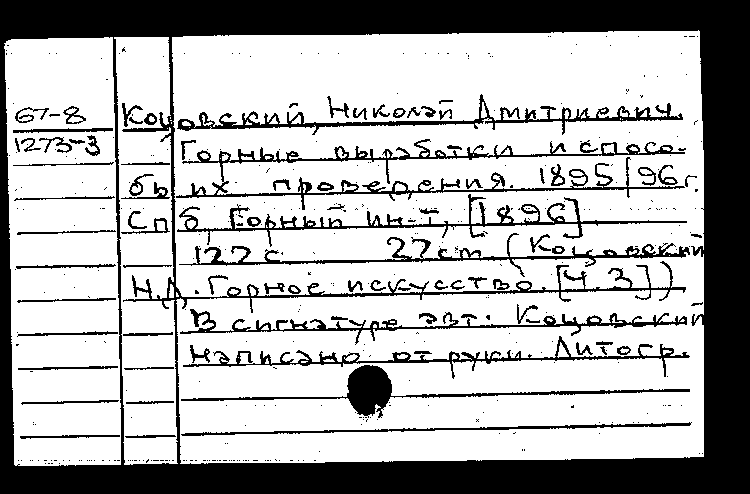 67-8
1273-3
Коцовский, Николай Дмитриевич.
Горные выработки и спосо-
бы их проведения. 1895/96г.
Спб, Горный ин-т, [1896]
122 с 27 см. (Коцовский
Н.Д. Горное искусство. [Ч. 3])
В сигнатуре авт. Коцовский
написано от руки. Литогр.